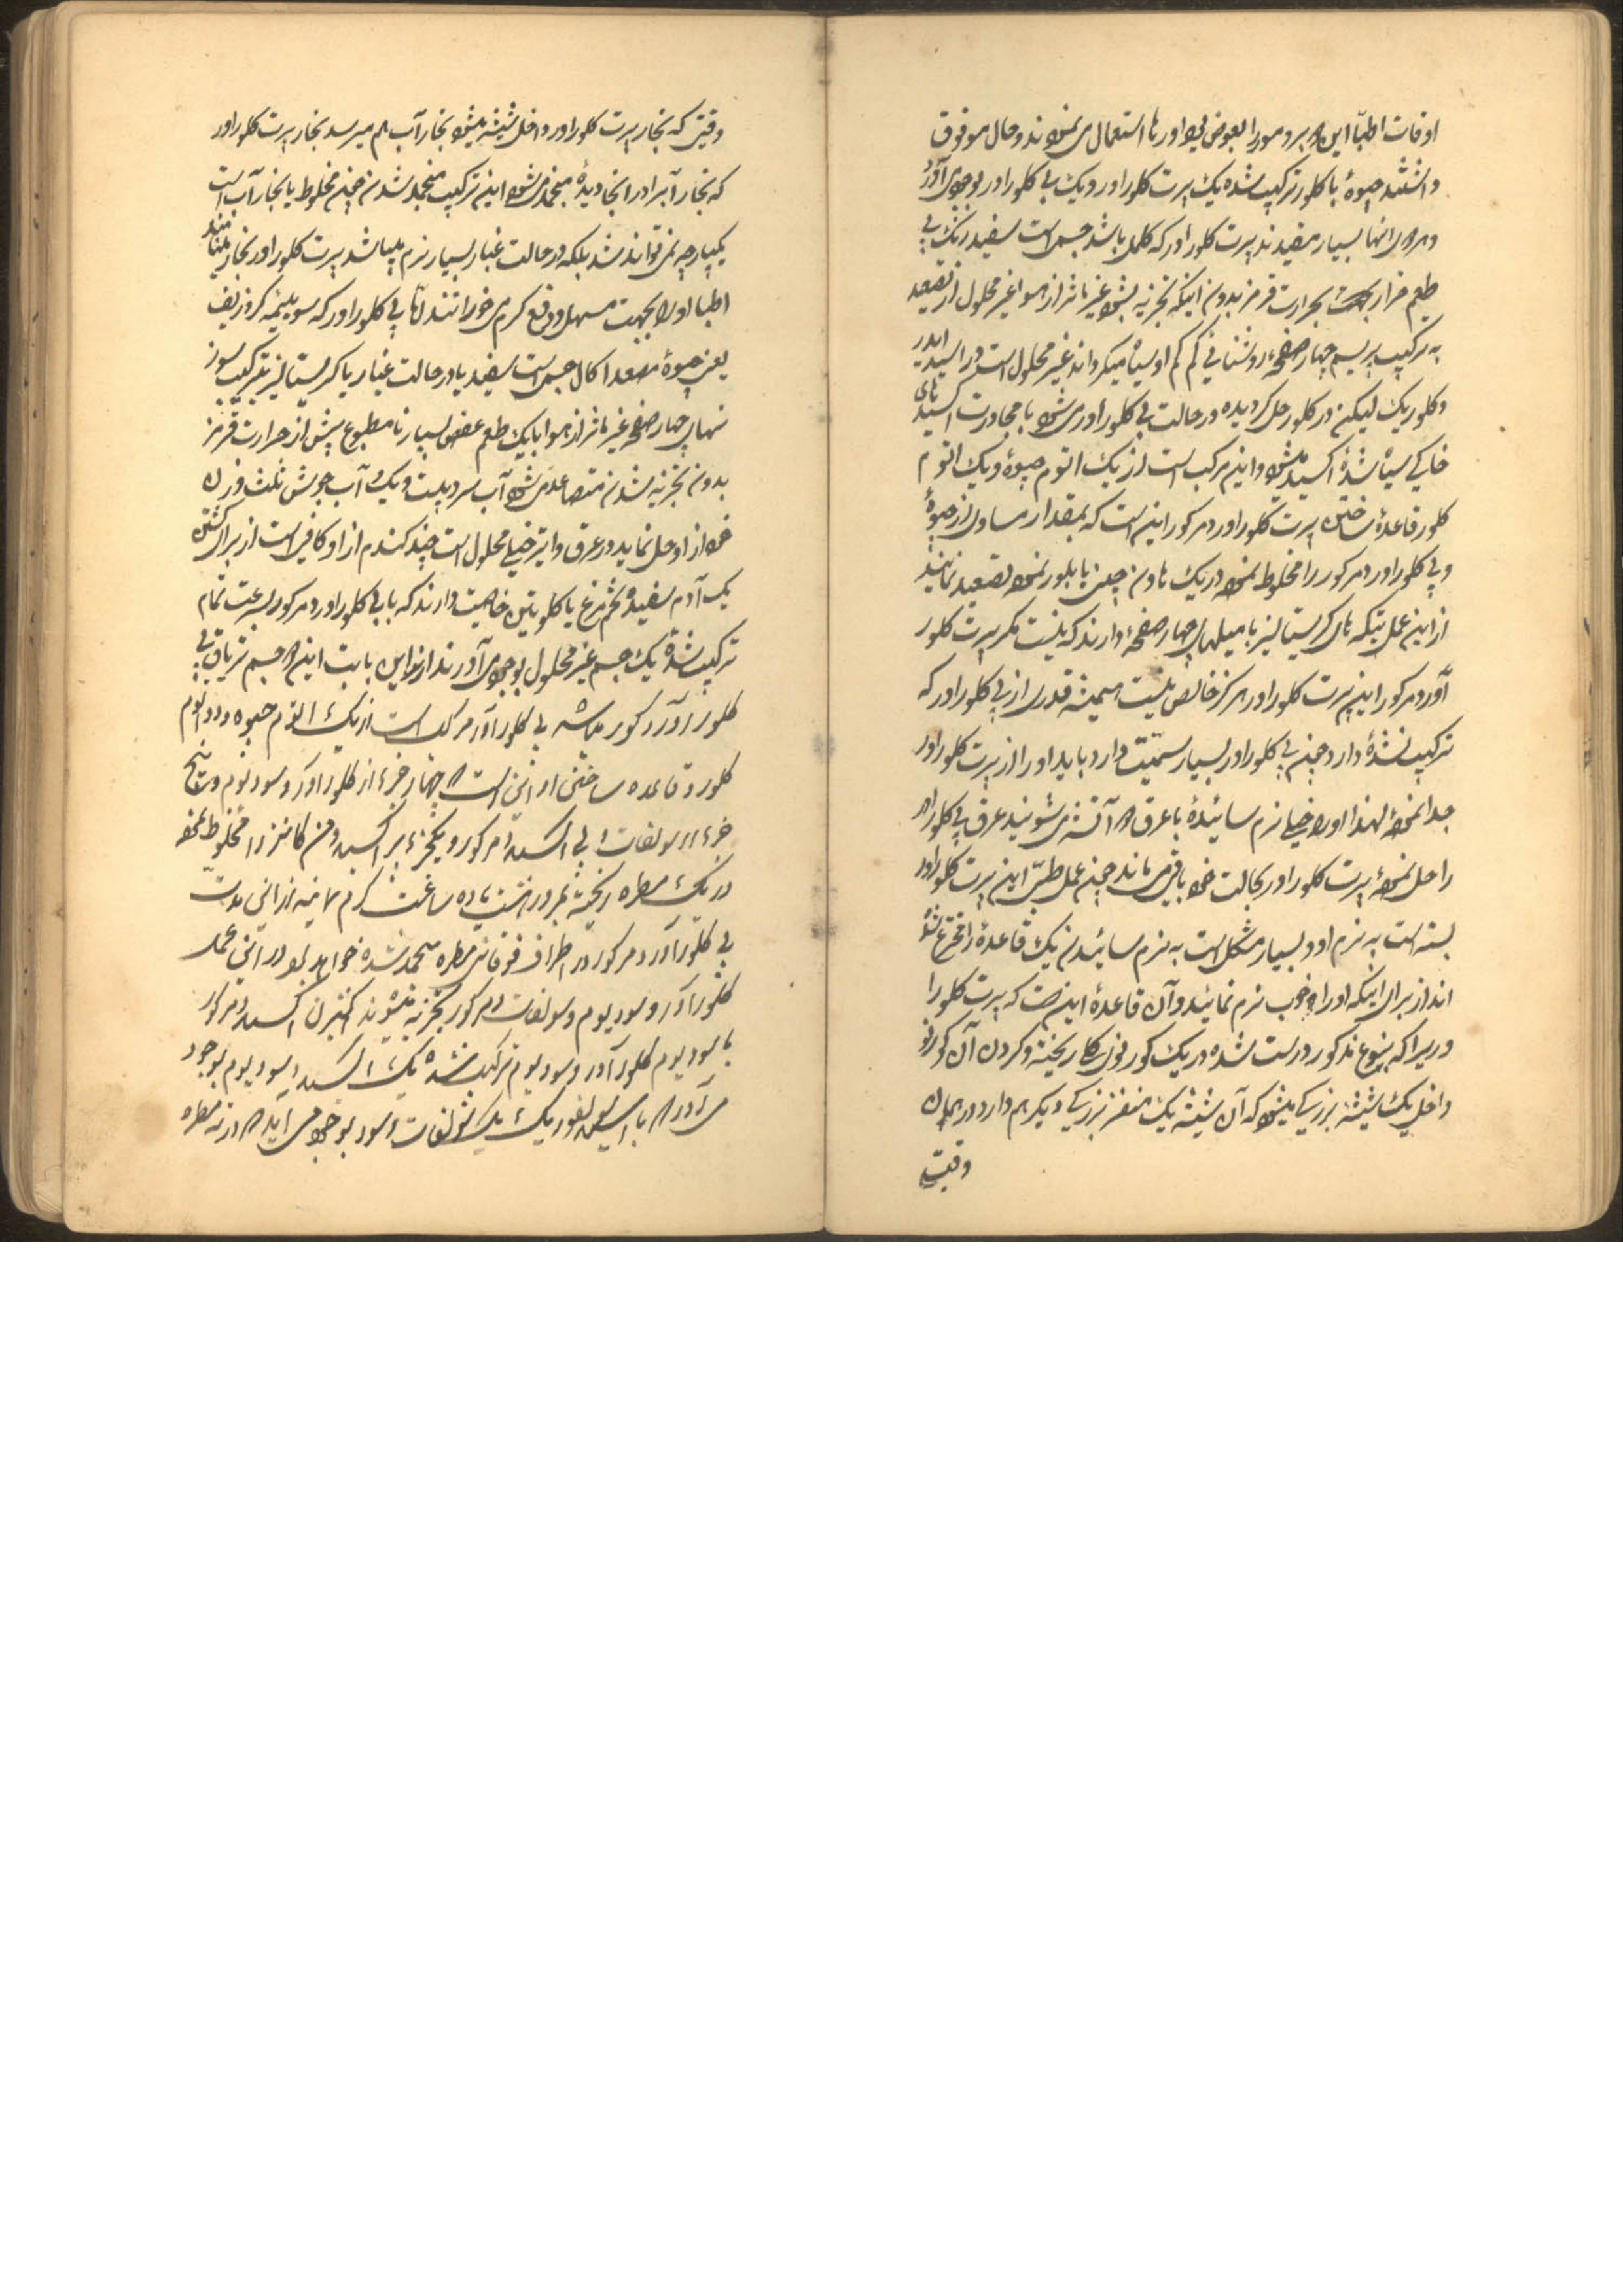 اوقات اطبّا این پرودمور را بعوض اورها استعمال می نمودند و حال موقوف
داشتند جیوهٔ با کلور ترکیب شده یک پرت کلوراور و یک بی کلوراور بوجود می آورد
و هر دو انها بسیار مفیدند پرت کلوراور که کلمل باشد جسمی است سفید رنگ بی
طعم فرار بحرارت قرمز بدون اینکه تجزیه بشود غیر ماثر از هوا غیر محلول از تصعید
به ترکیب پریسم چهار صفحه روشنائی کم کم او سیاه میگرداند غیر محلول است در اسید ایدر
و کلوریک لیکن در کلور حل گردیده در حالت بی کلوراور می شود با مجاورت اکسید های
خاکی سیاه شدهٔ اکسید میشود و این مرکب است از یک اتوم جیوهٔ و یک اتوم
کلور قاعدهٔ ساختن پرت کلوراور دمرکور این است که بمقدار مساوی از جیوهٔ
و بی کلوراور دمرکور را مخلوط نموده در یک هاون چینی یا بلور نموده تصعید نمایند
از این عمل تیکه های کریستالیز با میلهای چهار صفحهٔ دارند که نیست مگر پرت کلور
آور دمرکور این پرت کلوراور هرگز خالص نیست همیشه قدری از بی کلوراور که
ترکیب نشدهٔ دارد چون بی کلوراور بسیار سمّیت دارد باید او را از پرت کلوراور
جدا نموده لهذا او را خیلی نرم سائیدهٔ با عرق آتش می شویند عرق بی کلوراور
را حل نموده پرت کلوراور بحالت خود باقی می ماند چون عمل طبّی این پرت کلوراور
بسته است به نرمی او و بسیار مشکل است به نرم سائیدن یک قاعدهٔ را مخترع شدهٔ
اند از برای اینکه او را خوب نرم نمایند و آن قاعدهٔ این است که پرت کلورا
وریرا که بنوع مذکور درست شده در یک کورنوی کلی ریخته و گردن آن کورنو
داخل یک شیشهٔ بزرگی میشود که آن شیشه یک منفذ بزرگی دیگر هم دارد در همان
وقیت
وقتی که بخار پرت کلوراور داخل شیشه میشود بخار آب هم میرسد بخار پرت کلوراور
که بخار آبرا در انجا دیدهٔ منجمد می شود این ترکیب منجمد شدن چون مخلوط با بخار آب است
یکپارچه نمی تواند شد بلکه در حالت غبار بسیار نرم میباشد پرت کلوراور بخار مینامند
اطبا او را بجهت مسهل و دفع کرم می خورانند امّا بی کلوراور که سوبلیمه کرزیف
یعنی جیوهٔ مصعد اکال جسمی است سفید یا در حالت غبار یا کریستالیز بترکیب سوز
نهای چهار صفحه غیر ماثر از هوا با یک طعم عفص بسیار نامطبوع پیش از حرارت قرمز
بدون تجزیه شدن متصاعد می شود آب سرد بیست و یک آب جوش ثلث وزن
خود از او حل نماید در عرق و ایتر خیلی محلول است چند گندم از او کافی است از برای کشتن
یک آدم سفیدهٔ تخم مرغ یا گلوتین خاصیت دارند که با بی کلوراور دمرکور بسرعت تمام
ترکیب شدهٔ یک جسم غیر محلول بوجود می آورند از این بابت این جسم تریاق بی
کلوراور دمرکور میباشد بی کلوراور مرکب است از یک اتوم جیوه و دو اتوم
کلور و قاعده ساختن او این است چهار جزء از کلوراور دسودیوم و پنج
جزء سولفات بی اکسید دمرکور و یکجزء پراکسید منکانز را مخلوط نموده
در یک مطره ریخته بمرور هشت یا ده ساعت گرم نمایند از این مدت
بی کلوراور دمرکور در اطراف فوقانی مطره منجمد شده خواهد بود در این عمل
کلوراور دسودیوم و سولفات دمرکور تجزیه میشوند اکسیژن اکسید دمرکور
با سودیوم کلوراور دسودیوم ترکیب شده یک اکسید دسودیوم بوجود
می آورد با اسید سولفوریک یک سولفات دسود بوجود می آید در ته مطره